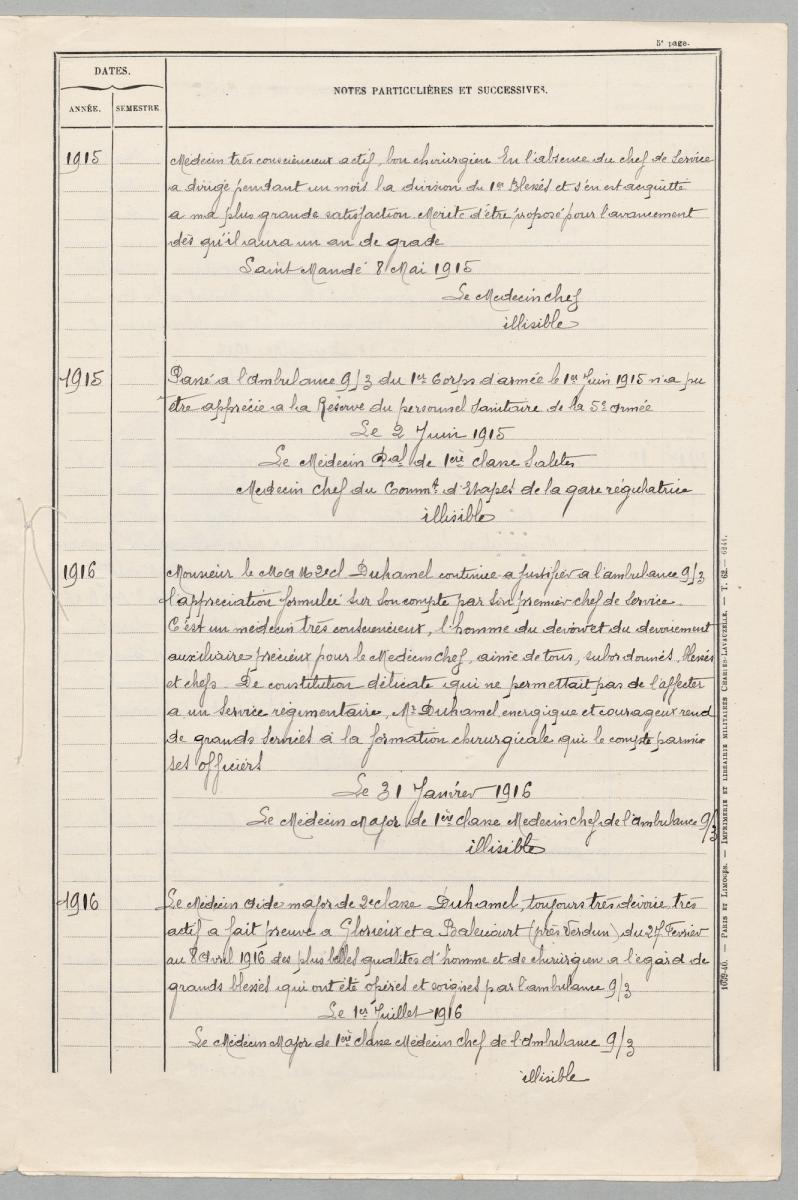 5e page.
DATES.
NOTES PARTICULIÈRES ET SUCCESSIVES.
ANNÉE. SEMESTRE
1915 Médecin très consciencieux actif, bon chirurgien En l'absence du chef de Service
a dirigé pendant un mois la division du 1er Blessés et s'en est acquitté
a ma plus grande satisfaction Mérite d'être proposé pour l'avancement
dès qu'il aura un an de grade
Saint Mandé 8 Mai 1915
Le Médecin chef
illisible
1915 Passé a l'ambulance 9/3 du 1er Corps d'armée le 1er Juin 1915 n'a pu
être apprécié a la Réserve du personnel Sanitaire de la 5e armée
Le 2 Juin 1915
Le Médecin Pal de 1ère classe
Médecin chef du Commt d'Etapes de la gare régulatrice
illisible
1916 Monsieur le 2e cl Duhamel continue a justifier a l'ambulance 9/3
l'appréciation formulée sur son compte par son premier chef de Service
C'est un médecin très consciencieux, l'homme du devoir et du dévouement
auxiliaire précieux pour le Médecin chef, aimé de tous, subordonnés, blessés
et chefs De constitution délicate qui ne permettait pas de l'affecter
a un Service régimentaire, Mr Duhamel énergique et courageux rend
de grands Services à la formation chirurgicale qui le compte parmi
ses officiers
Le 31 Janvier 1916
Le Médecin Major de 1ère classe Médecin chef de l'ambulance 9/3
illisible
1916 Le Médecin aide major de 2e classe Duhamel, toujours très dévoué très
actif a fait preuve a Glorieux et a Baleicourt (près Verdun) du 27 Février
au 8 Avril 1916 des plus belles qualités d'homme et de chirurgien a l'égard de
grands blessés qui ont été opérés et soignés par l'ambulance 9/3
Le 1er Juillet 1916
Le Médecin Major de 1ère classe Médecin chef de l'Ambulance 9/3
illisible
1029-40. — PARIS ET LIMOGES. — IMPRIMERIE ET LIBRAIRIE MILITAIRES CHARLES-LAVAUZELLE. — T. 62. — 6244.